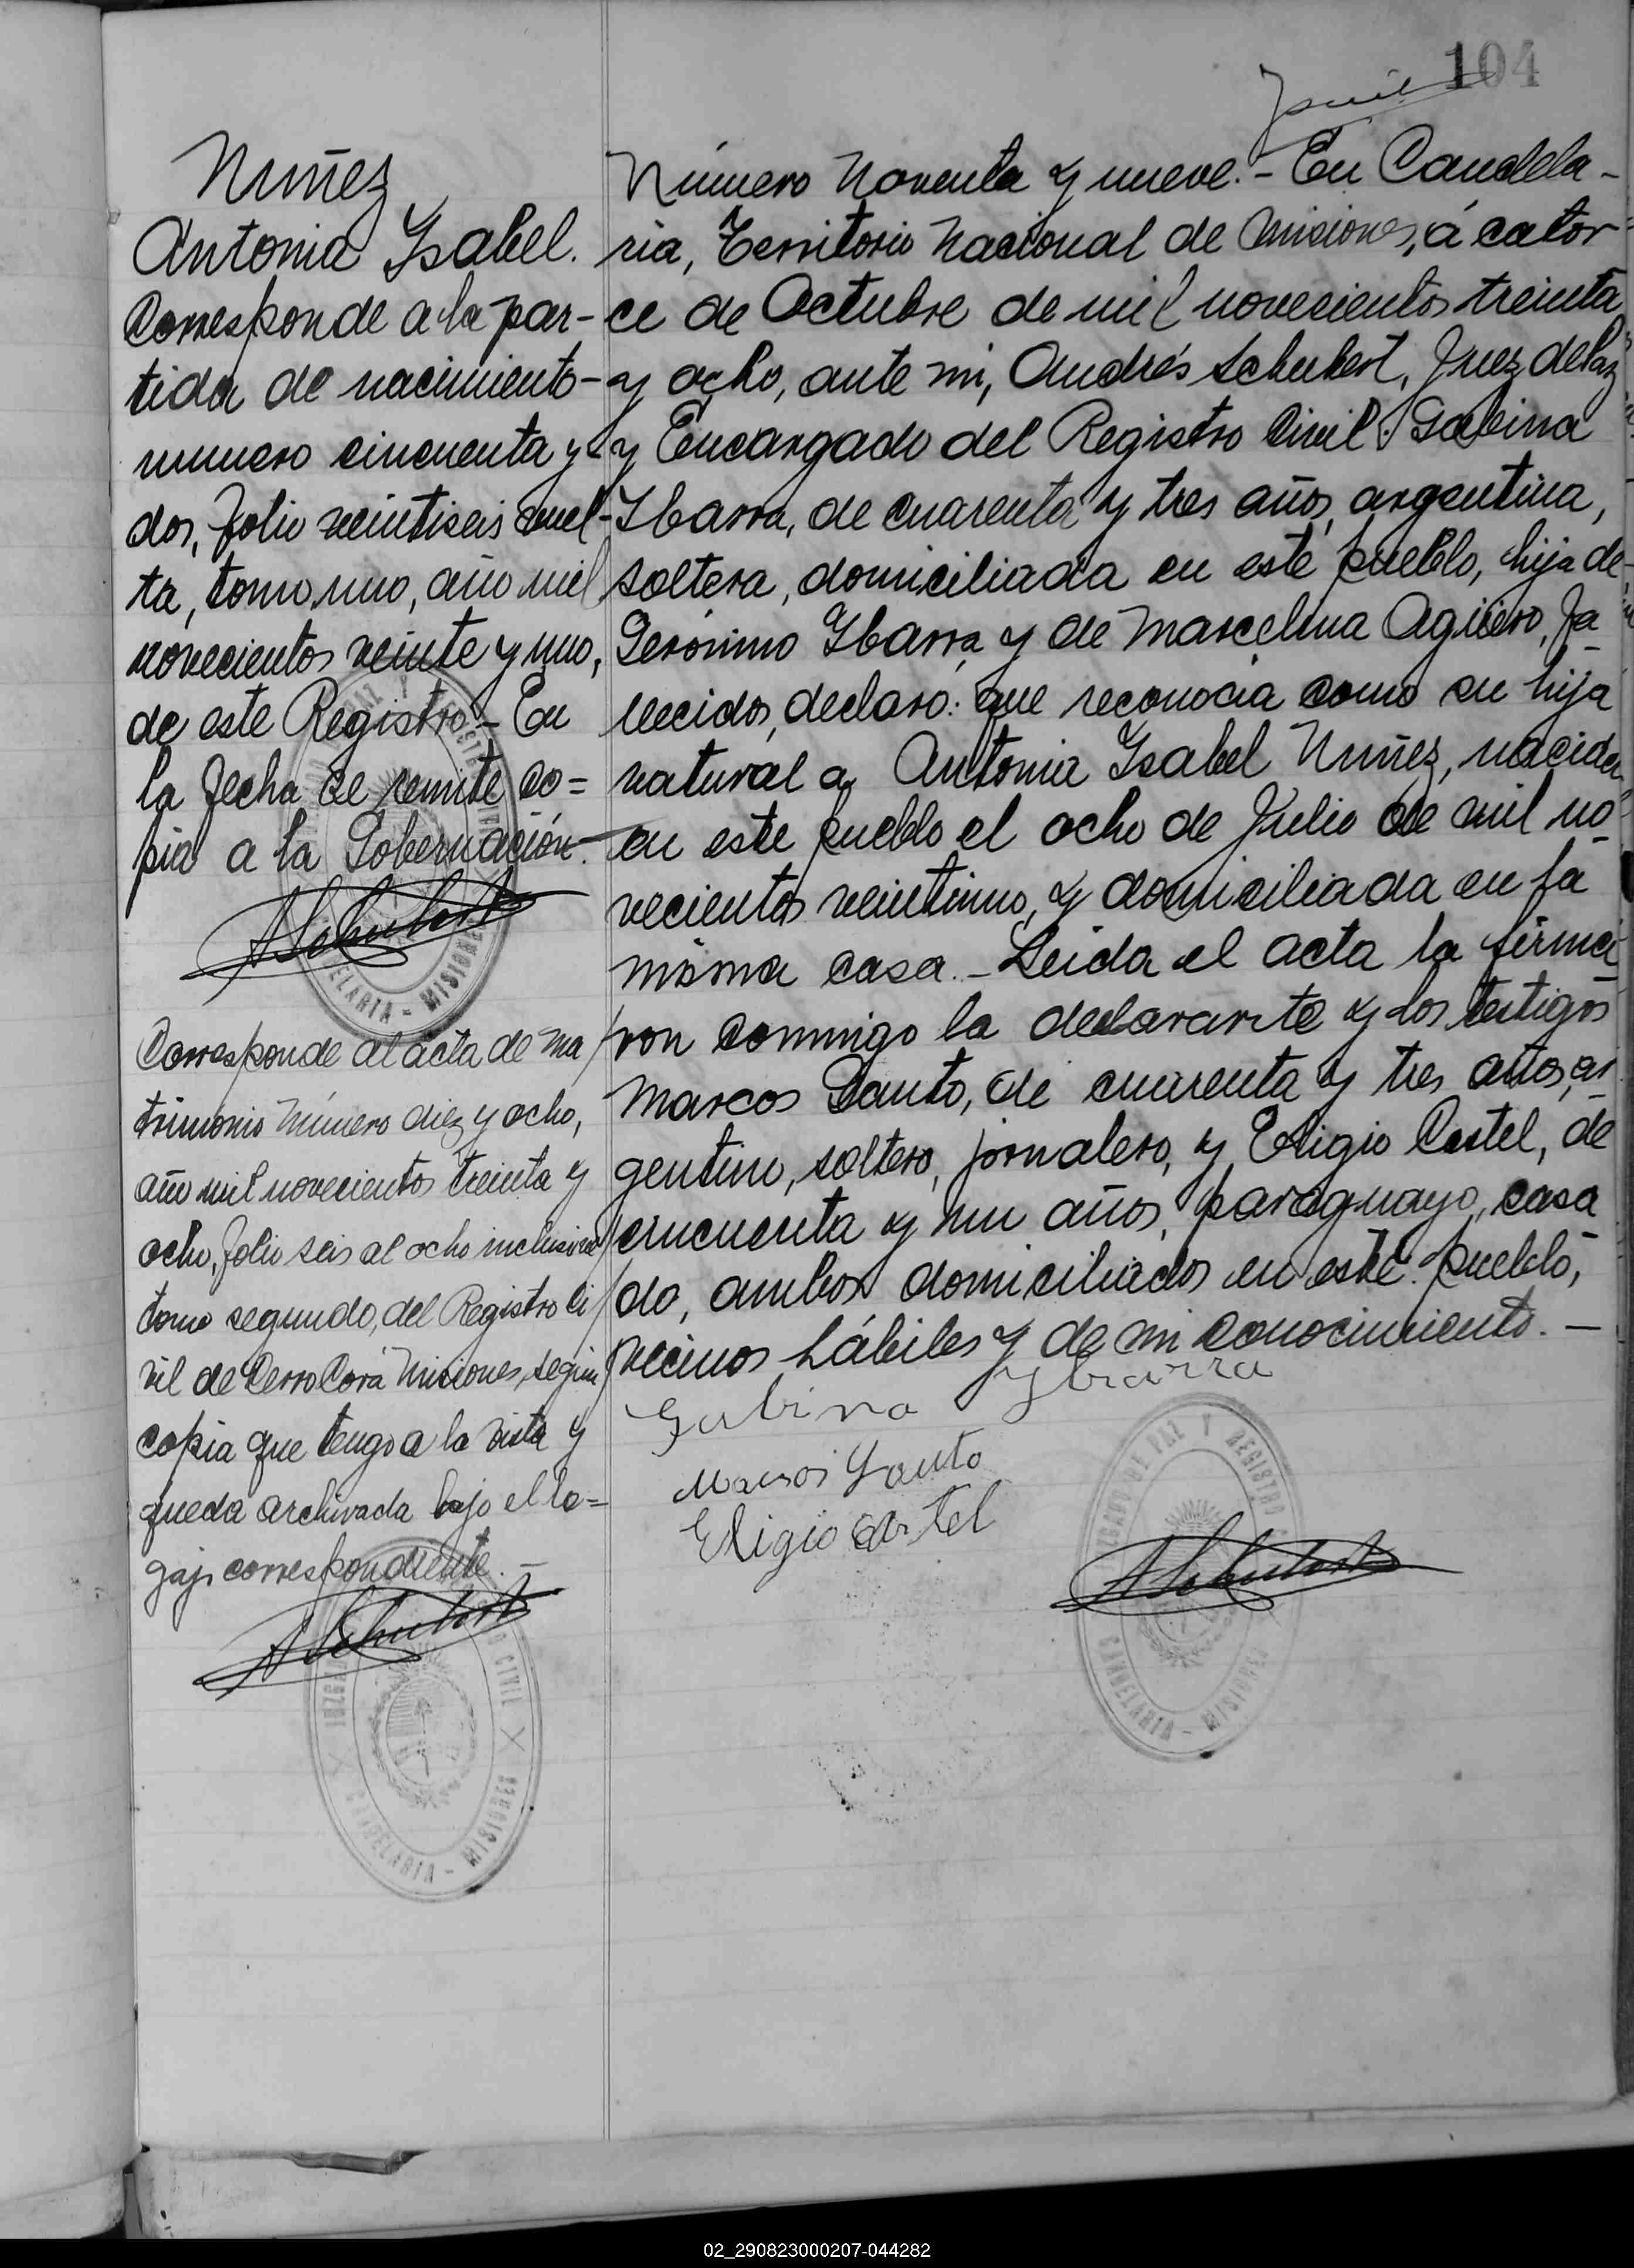 104
Nuñez
Antonia Ysabel.
Corresponde a la par-
tida de nacimiento-
numero cincuenta y
dos, folio veintiseis vuel-
ta, tomo uno, año mil
novecientos veinte y uno,
de este Registro.- En
la fecha se remite co=
pia a la Gobernación.-
ASchubert
Corresponde al acta de ma
trimonio número diez y ocho,
año mil novecientos treinta y
ocho, folio seis al ocho inclusive
tomo segundo, del Registro Ci
vil de Cerro Corá Misiones, según
copia que tengo a la vista y
queda archivada bajo el le=
gajo correspondiente.-
ASchubert
Número Noventa y nueve.- En Candela-
ria, Territorio Nacional de Misiones, á cator
ce de Octubre de mil novecientos treinta
y ocho, ante mi, Andrés Schubert, Juez de Paz
y Encargado del Registro Civil. Gabina
Ibarra, de cuarenta y tres años, argentina,
soltera, domiciliada en este pueblo, hija de
Gerónimo Ibarra y de Marcelina Agüero, fa-
llecidos, declaró: que reconocia como su hija
natural a Antonia Ysabel Nuñez, nacida
en este pueblo el ocho de Julio de mil no-
vecientos veintiuno, y domiciliada en la
misma casa.- Leida el acta la firma-
ron conmigo la declarante y los testigos
Marcos Santo, de cuarenta y tres años, ar-
gentino, soltero, jornalero, y Eligio Castel, de
cincuenta y un años, paraguayo, casa
do, ambos domiciliados en este pueblo,
vecinos hábiles y de mi conocimiento.-
Gabina Ybarra
Marcos Santo
Eligio Castel
ASchubert
JUZGADO DE PAZ Y REGISTRO CIVIL
CANDELARIA - MISIONES
02_290823000207-044282